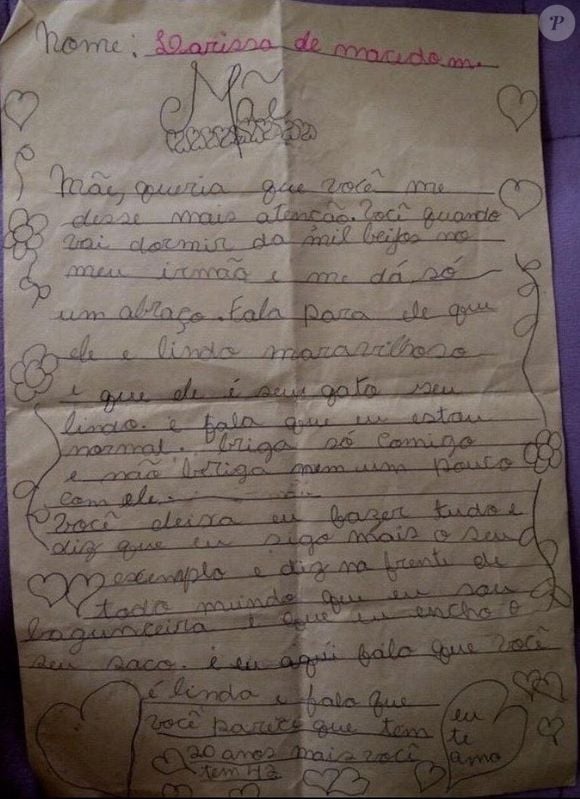 Nome: Larissa de macedo m.
Mãe
Mãe, queria que você me
desse mais atenção. Você quando
vai dormir da mil beijos no
meu irmão e me dá só
um abraço. Fala para ele que
ele e lindo maravilhoso
e que ele é seu gato seu
lindo. e fala que eu estou
normal. briga só comigo
e não briga nem um pouco
com ele.
Você deixa eu fazer tudo e
diz que eu sigo mais o seu
exemplo e diz na frente de
todo mundo que eu sou
bagunceira e que eu encho o
seu saco. e eu aqui falo que você
é linda e falo que
você parice que tem
20 anos mais você
tem 42
eu
te
amo
P